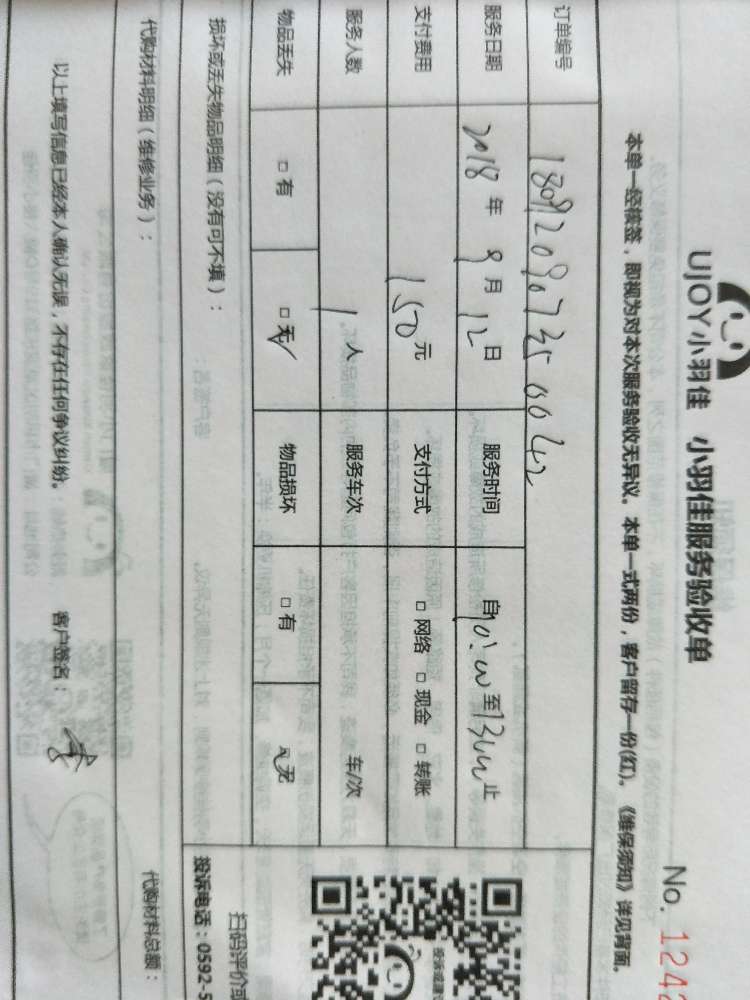 UJOY小羽佳 小羽佳服务验收单 No. 124
本单一经核签，即视为对本次服务验收无异议。本单一式两份，客户留存一份(红)。《维保须知》详见背面。
订单编号
服务日期 2018 年 9 月 12 日 服务时间 自10:00至1300止
支付费用 150元 支付方式 □ 网络 □ 现金 □ 转账
服务人数 1人 服务车次 车/次
物品丢失 □ 有 □ 无 物品损坏 □ 有 □ 无
损坏或丢失物品明细（没有可不填）：
扫码评价或
投诉电话：0592-5
代购材料明细（维修业务）： 代购材料总额：
以上填写信息已经本人确认无误，不存在任何争议纠纷。 客户签名：